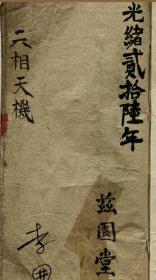 光緒貳拾陸年
六相天機
茲園堂
李